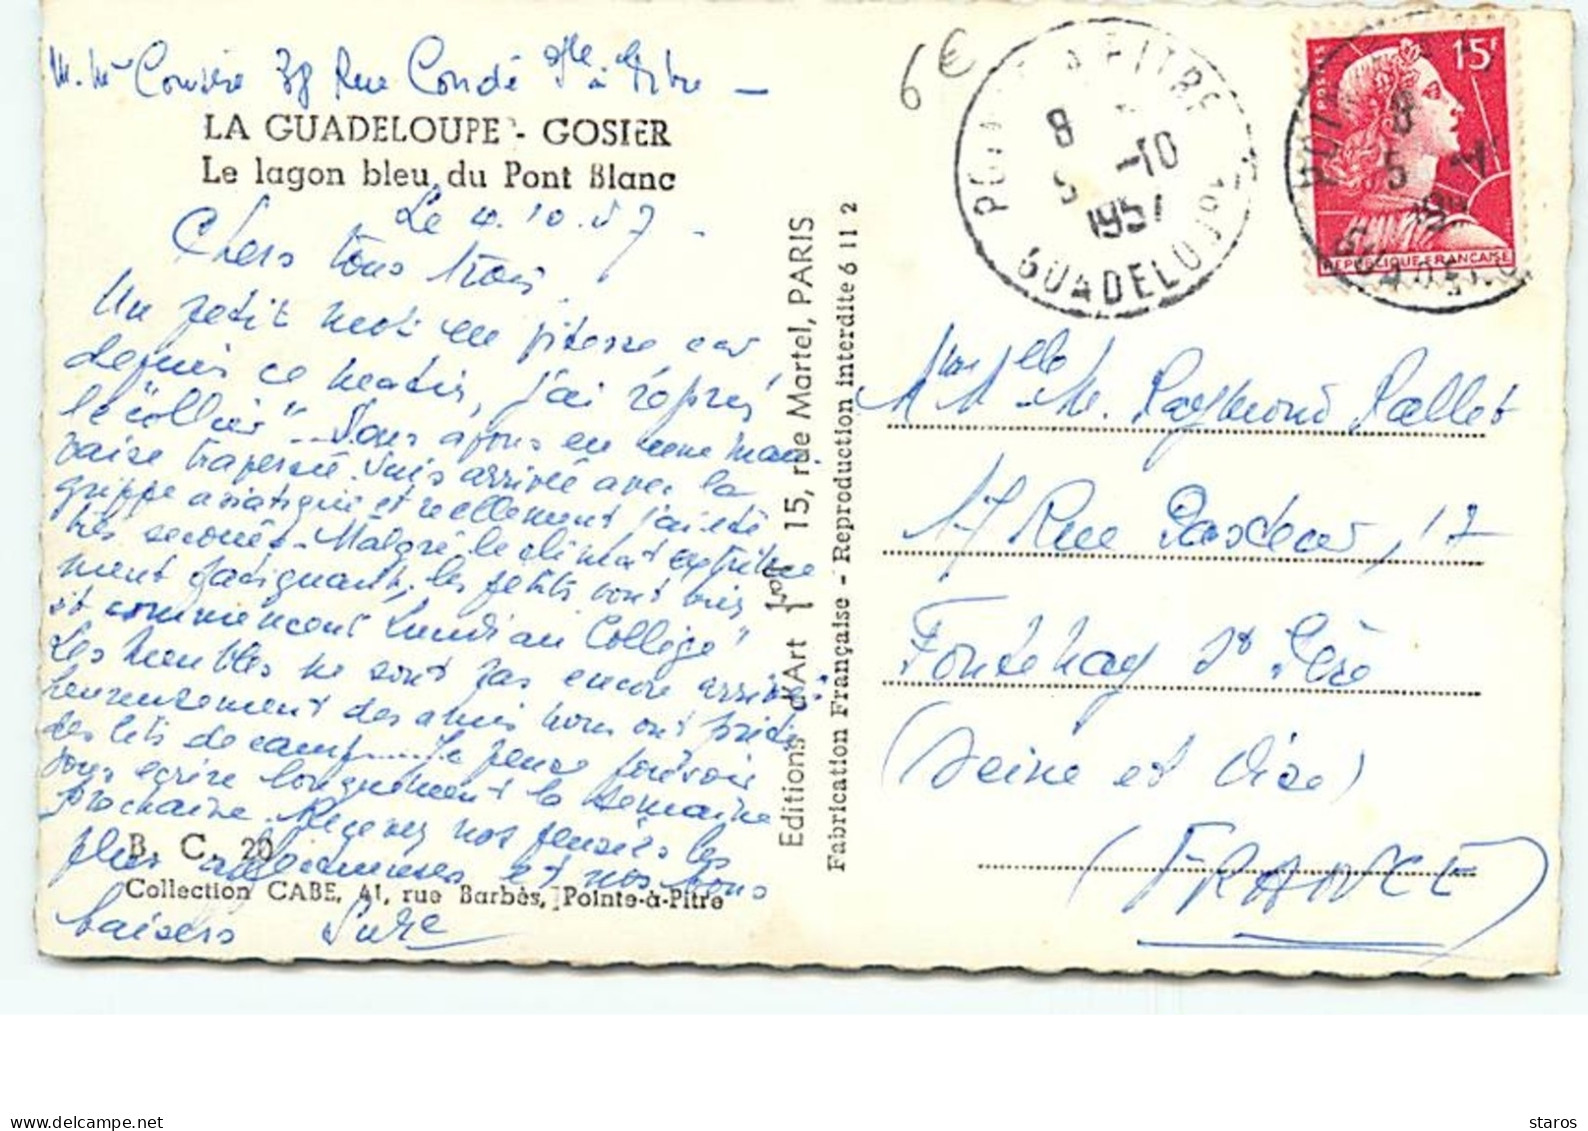 M. Mme 38 Rue Condé Pte à Pitre -
LA GUADELOUPE - GOSIER
Le lagon bleu du Pont Blanc
Le 4.10.57.
Chers tous trois.
Un petit mot en vitesse car
depuis ce matin, j'ai repris
le "collier" - Nous avons eu une mau-
vaise traversée. Suis arrivée avec la
grippe asiatique et reellement j'ai été
très secouée - Malgré le climat extrême
ment fatiguant, les petits vont bien
et commencent Lundi au Collège"
Les meubles ne sont pas encore arrivés
heureusement des amis nous ont prêté
des lits de camp..... Je pense pouvoir
vous écrire longuement la semaine
prochaine. Recevez nos pensées les
plus affectueuses et nos bons
baisers
B. C. 20
Collection CABE, 41, rue Barbès, Pointe-à-Pitre
Editions d'Art 15, rue Martel, PARIS
Fabrication Française - Reproduction interdite 6 11 2
6€
POINTE A PITRE
8
5 -10
1957
GUADELOUPE
POSTES
15F
REPUBLIQUE FRANCAISE
8
5
GUADELOUPE
Mr Mme Melle Raymond Pallet
17 Rue Pasteur, 17
Fontenay St Père
(Seine et Oise)
(FRANCE)
delcampe.net
staros